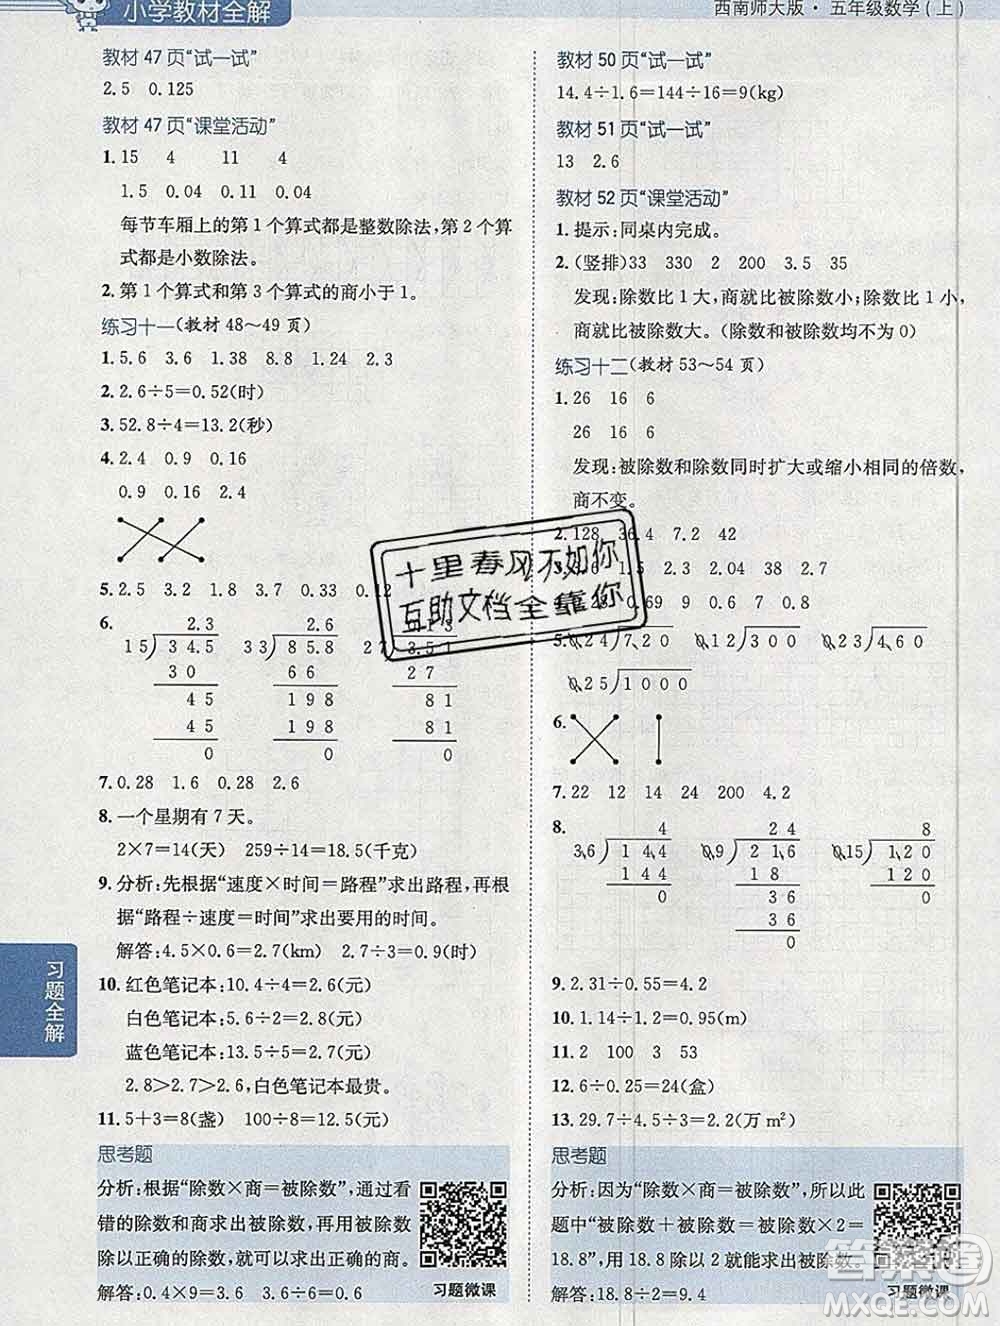 小学教材全解
西南师大版·五年级数学(上)
教材 47 页“试一试”
2.5 0.125
教材 47 页“课堂活动”
1. 15 4 11 4
1.5 0.04 0.11 0.04
每节车厢上的第 1 个算式都是整数除法,第 2 个算
式都是小数除法。
2. 第 1 个算式和第 3 个算式的商小于 1。
练习十一(教材 48～49 页)
1. 5.6 3.6 1.38 8.8 1.24 2.3
2. 2.6÷5=0.52(时)
3. 52.8÷4=13.2(秒)
4. 2.4 0.9 0.16
0.9 0.16 2.4
5. 2.5 3.2 1.8 0.33 0.12
6.
2.3
15 34.5
30
45
45
0
2.6
33 85.8
66
198
198
0
27 3.51
27
81
81
0
7. 0.28 1.26 0.28 2.6
8. 一个星期有 7 天。
2×7=14(天) 259÷14=18.5(千克)
9. 分析:先根据“速度×时间=路程”求出路程,再根
据“路程÷速度=时间”求出要用的时间。
解答:4.5×0.6=2.7(km) 2.7÷3=0.9(时)
10. 红色笔记本:10.4÷4=2.6(元)
白色笔记本:5.6÷2=2.8(元)
蓝色笔记本:13.5÷5=2.7(元)
2.8>2.7>2.6,白色笔记本最贵。
11. 5+3=8(盏) 100÷8=12.5(元)
思考题
分析:根据“除数×商=被除数”,通过看
错的除数和商求出被除数,再用被除数
除以正确的除数,就可以求出正确的商。
解答:0.4×9=3.6 3.6÷6=0.6
习题微课
习题全解
教材 50 页“试一试”
14.4÷1.6=144÷16=9(kg)
教材 51 页“试一试”
13 2.6
教材 52 页“课堂活动”
1. 提示:同桌内完成。
2. (竖排)33 330 2 200 3.5 35
发现:除数比 1 大,商就比被除数小;除数比 1 小,
商就比被除数大。(除数和被除数均不为 0)
练习十二(教材 53～54 页)
1. 26 16 6
26 16 6
发现:被除数和除数同时扩大或缩小相同的倍数,
商不变。
2. 128 36.4 7.2 42
1.5 120 15
0.69 9 0.7
5. 0.24 7.20 0.12 3.00 0.23 4.60
0.25 10.00
6.
7. 22 12 14 200 4.2
8.
4
3.6 14.4
144
0
24
0.9 21.6
18
36
36
0
8
0.15 1.20
120
0
9. 2.31÷0.55=4.2
10. 1.14÷1.2=0.95(m)
11. 2 100 3 53
12. 6÷0.25=24(盒)
13. 29.7÷4.5÷3=2.2(万 m²)
思考题
分析:因为“除数×商=被除数”,所以此
题中“被除数+被除数=被除数×2=
18.8”,用 18.8 除以 2 就能求出被除数。
解答:18.8÷2=9.4
习题微课
十里春风不如你
互助文档全靠你
答案圈
MXQE.COM